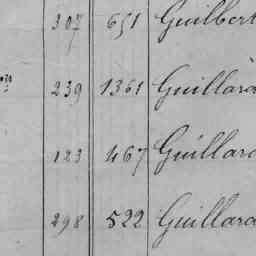 307 651 Guilbert
239 1361 Guillard
123 467 Guillard
298 522 Guillard